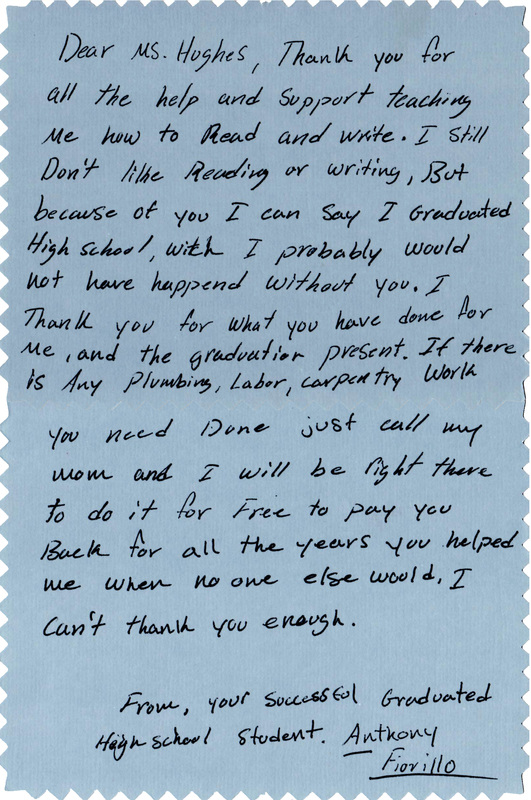 Dear Ms. Hughes, Thank you for
all the help and Support teaching
me how to Read and write. I Still
Don't like Reading or writing, But
because of you I can Say I Graduated
High school, with I probably would
not have happend without you. I
Thank you for what you have done for
me, and the graduation present. If there
is Any Plumbing, Labor, carpentry Work
you need Done just call my
mom and I will be right there
to do it for Free to pay you
Back for all the years you helped
me when no one else would. I
Can't thank you enough.
From, your Successful Graduated
High school Student. Anthony
Fiorillo